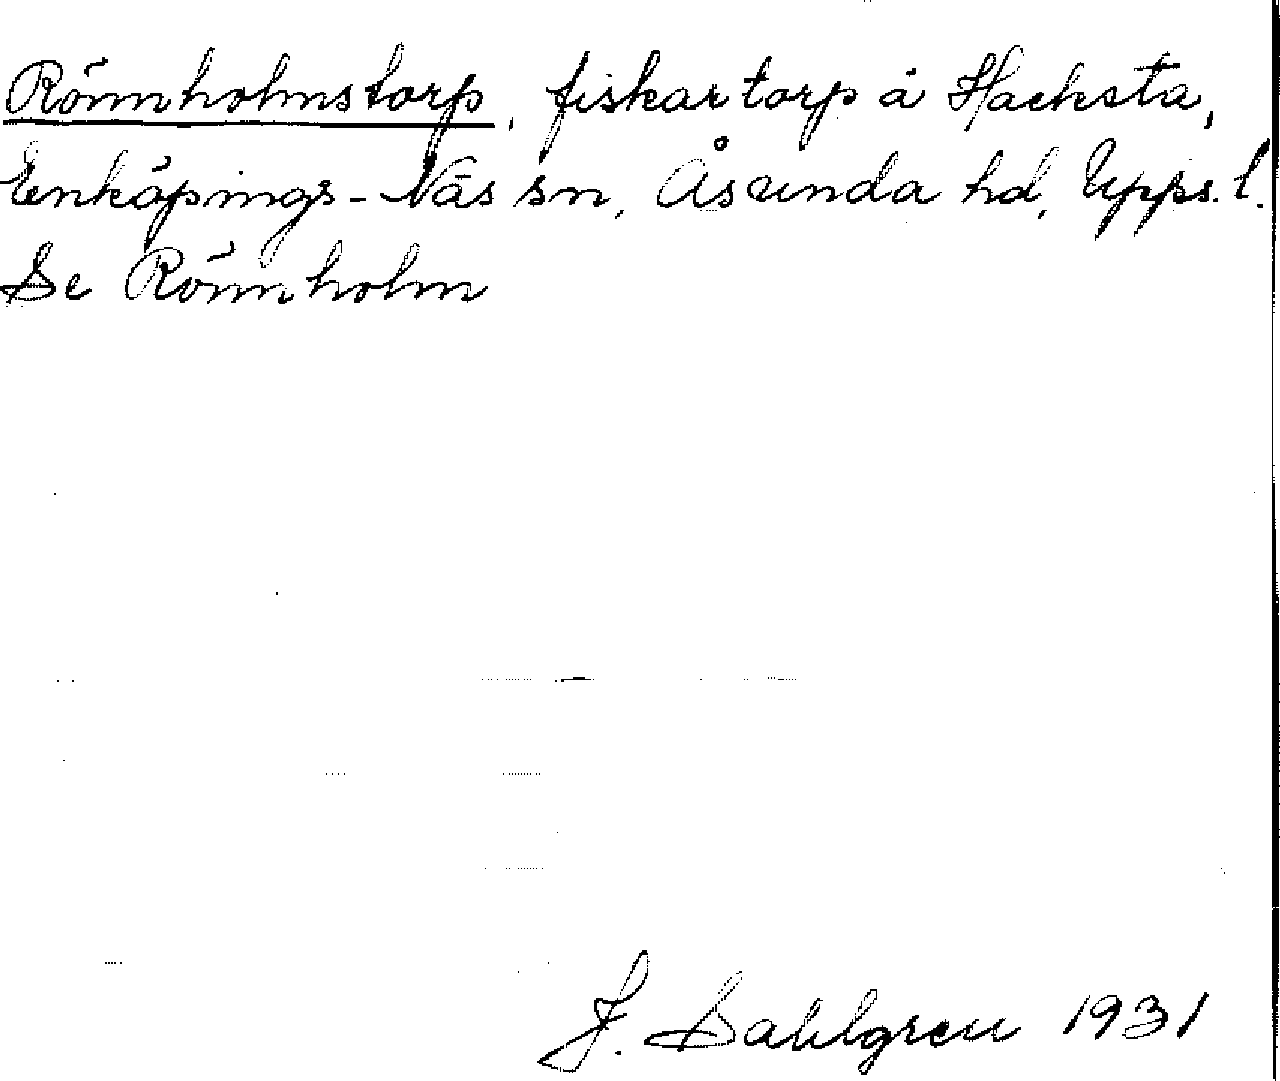 Rönnholmstorp, fiskartorp å Hacksta,
Enköpings-Näs sn, Åsunda hd, Upps. l.
Se Rönnholm
J. Dahlgren 1931